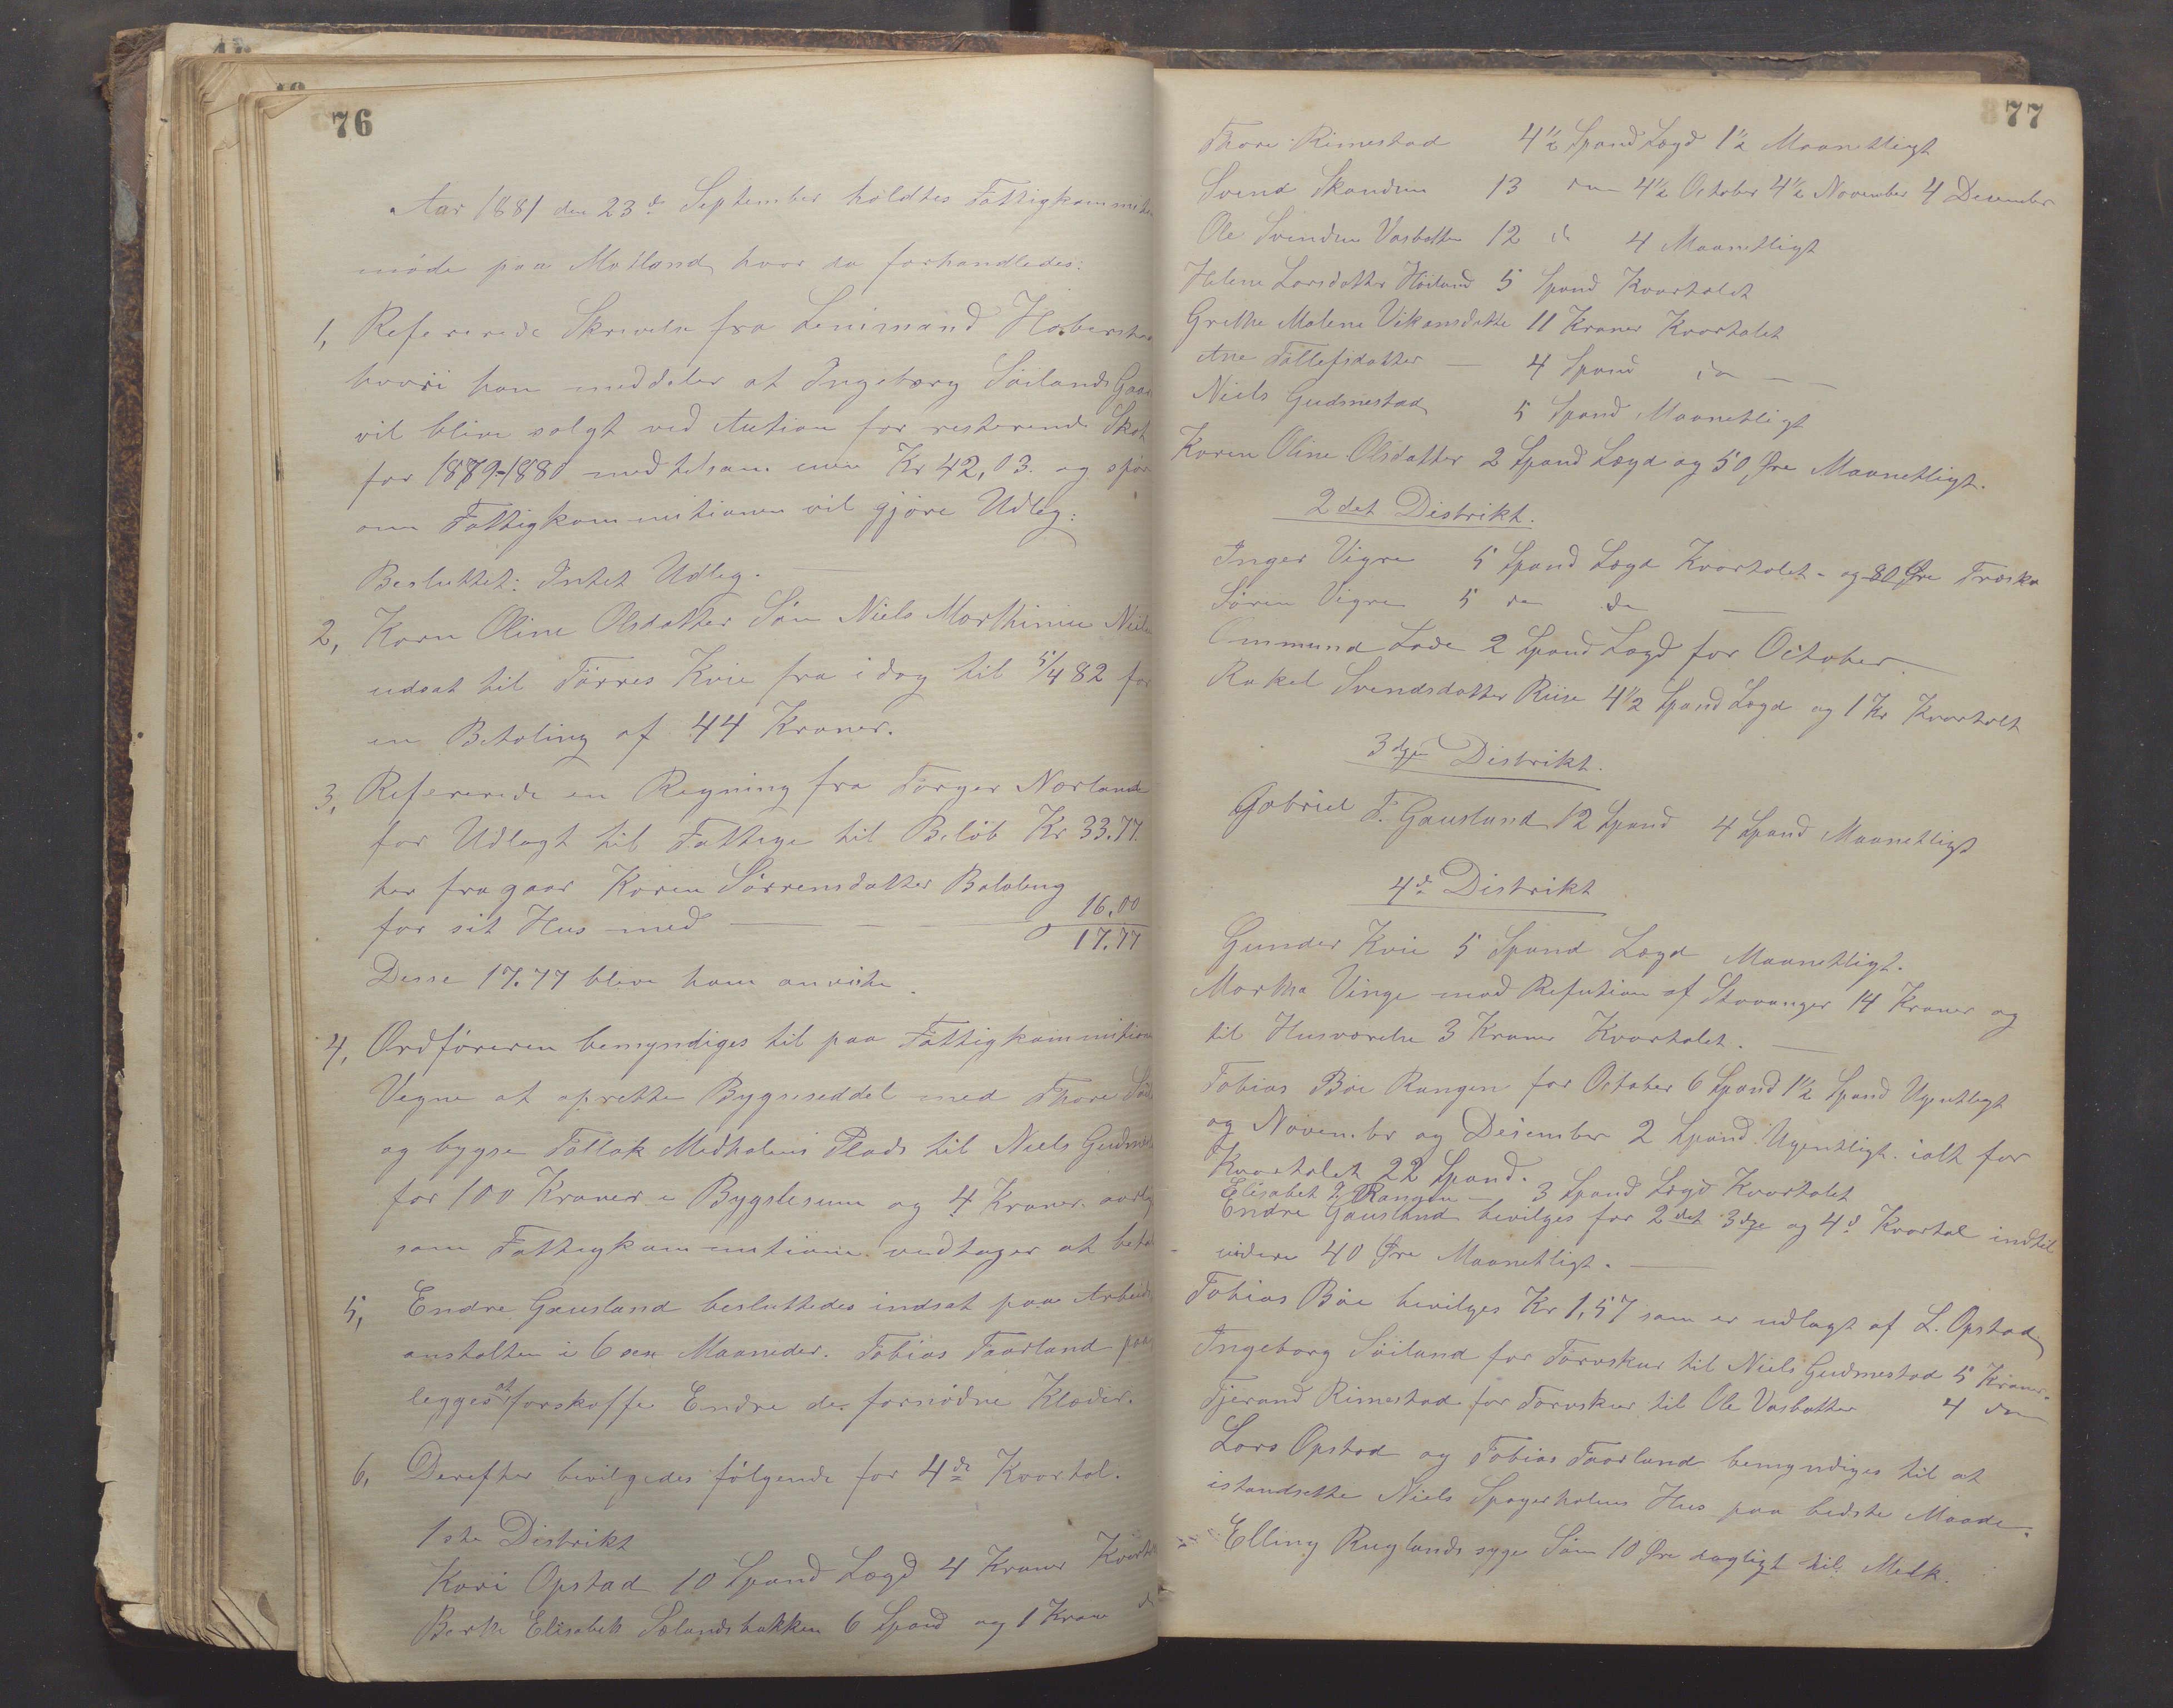 76
Aar 1881 den 23de September holdtes Fattigkommi
møde paa Motland hvor da forhandledes:
1, Refererede Skrivelse fra Lensmand Haberstad
hvori han meddeler at Ingeborg Søilands Gaar
vil blive solgt ved Aution for resterende Skat
for 1879-1880 med tilsammen Kr 42,03. og spør
om Fattigkommitionen vil gjøre Udleg:
Besluttet: Intet Udleg.
2, Karen Oline Olsdatter Søn Niels Marthinius Niels
udsat til Tørres Kvie fra i dag til 5/4 82 for
en Betaling af 44 Kroner.
3, Refererede en Regning fra Torger Norland
for Udlagt til Fattige til Beløb Kr 33.77.
her fragaar Karen Sørrensdatter Betaling
for sit Hus med 16,00
17.77
Desse 17.77 blive ham anviste.
4, Ordføreren bemyndiges til paa Fattigkommition
Vegne at oprette Bygselseddel med Thore
og bygse Tollak Medholens Plads til Niels Gudme
for 100 Kroner i Bygslesum og 4 Kroner aarlig
som Fattigkommitionen vedtager at beta
5, Endre Gausland besluttedes indsat paa Arbeids
anstalten i 6 sex Maaneder. Tobias Taarland paa
legges at forskaffe Endre de fornødne Klæder.
6, Derefter bevilgedes følgende for 4de Kvartal.
1ste Distrikt
Kari Opstad 10 Spand Lægd 4 Kroner Kvartal
Berthe Elisabeth Sælandsbakken 6 Spand og 1 Krone d
77
Thore Rimestad 4½ Spand Lægd 1½ Maanetligt
Svend Skanden 13 do 4½ October 4½ November 4 December
Ole Svendsen Vasbotten 12 d 4 Maanetligt
Helene Larsdatter Høiland 5 Spand Kvartalet
Grethe Malene Vikansdatte 11 Kroner Kvartalet
Ane Tollefsdatter — 4 Spand do —
Niels Gudmestad 5 Spand Maanetligt
Karen Oline Olsdatter 2 Spand Lægd og 50 Øre Maanetligt.
2det Distrikt.
Inger Vigre 5 Spand Lægd Kvartalet - og 80 Øre Træsko
Søren Vigre 5 do do —
Ommund Lode 2 Spand Lægd for October
Rakel Svendsdatter Riise 4½ Spand Lægd og 1 Kr Kvartalet
3dje Distrikt.
Gabriel T. Gausland 12 Spand 4 Spand Maanetligt
4de Distrikt
Gunder Kvie 5 Spand Lægd Maanetligt.
Martha Vinge mod Refution af Stavanger 14 Kroner og
til Husværelse 3 Kroner Kvartalet.
Tobias Bøe Rangen for October 6 Spand 1½ Spand Ugentligt
og November og Desember 2 Spand Ugentligt. ialt for
Kvartalet 22 Spand.
Elisabet Rangen — 3 Spand Lægd Kvartalet
Endre Gausland bevilges for 2det 3dje og 4d Kvartal indtil
videre 40 Øre Maanetligt.
Tobias Bøe bevilges Kr 1,57 som er udlagt af L. Opstad
Ingeborg Søiland for Torvskur til Niels Gudmestad 5 Kroner.
Tjerand Rimestad for Torvskur til Ole Vasbotten 4 do
Lars Opstad og Tobias Taarland bemyndiges til at
istandsette Niels Spagerholens Hus paa bedste Maade.
Elling Ruglands syge Søn 10 Øre dagligt til Melk.